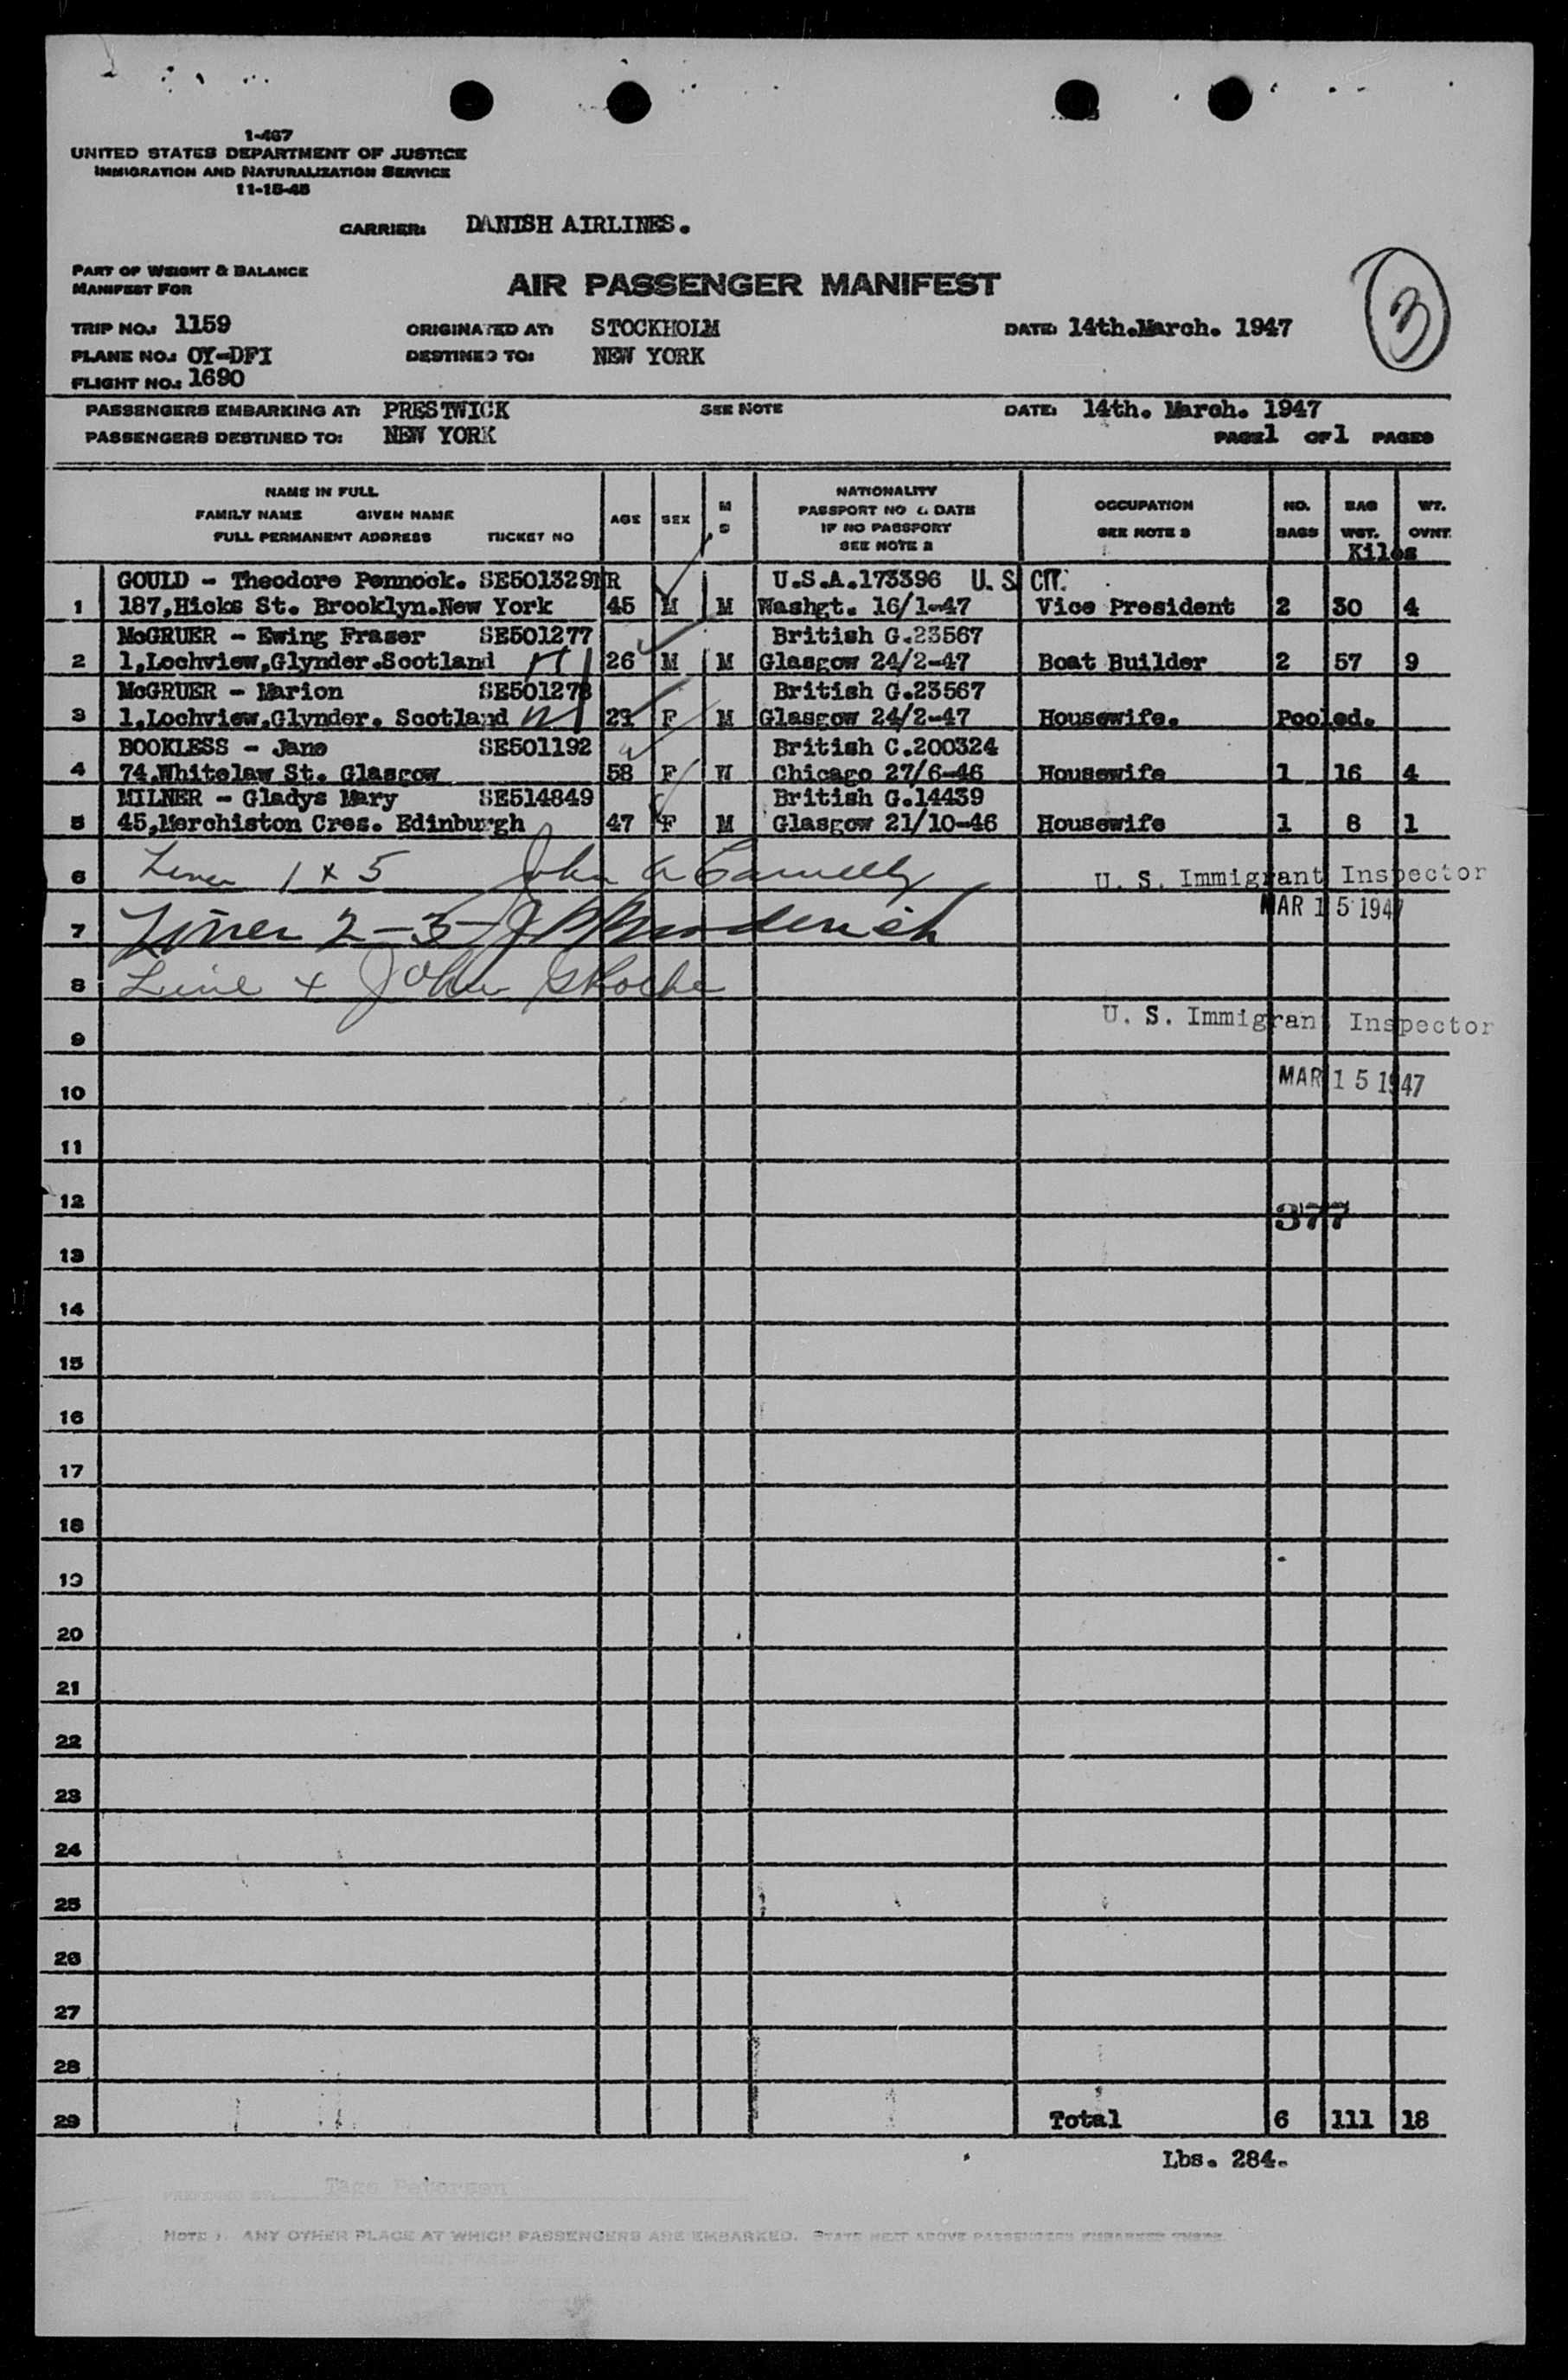 1-467
UNITED STATES DEPARTMENT OF JUSTICE
IMMIGRATION AND NATURALIZATION SERVICE
11-15-45
CARRIER: DANISH AIRLINES.
PART OF WEIGHT & BALANCE
MANIFEST FOR
AIR PASSENGER MANIFEST
3
TRIP NO.: 1159 ORIGINATED AT: STOCKHOLM DATE: 14th.March. 1947
PLANE NO.: OY-DFI DESTINED TO: NEW YORK
FLIGHT NO.: 1690
PASSENGERS EMBARKING AT: PRESTWICK SEE NOTE DATE: 14th. March. 1947
PASSENGERS DESTINED TO: NEW YORK PAGE 1 OF 1 PAGES
NAME IN FULL
FAMILY NAME GIVEN NAME
FULL PERMANENT ADDRESS TICKET NO
AGE SEX M S
NATIONALITY
PASSPORT NO & DATE
IF NO PASSPORT
SEE NOTE 2
OCCUPATION
SEE NOTE 3
NO. BAGS
BAG WGT.
WT. OVNT.
Kilos
GOULD - Theodore Pennock. SE501329NR U.S.A.173396 U. S. CIT.
1 187,Hicks St. Brooklyn.New York 45 M M Washgt. 16/1-47 Vice President 2 30 4
McGRUER - Ewing Fraser SE501277 British G.23567
2 1,Lochview,Glynder.Scotland 26 M M Glasgow 24/2-47 Boat Builder 2 57 9
McGRUER - Marion SE501278 British G.23567
3 1,Lochview,Glynder. Scotland 23 F M Glasgow 24/2-47 Housewife. Pooled.
BOOKLESS - Jane SE501192 British C.200324
4 74,Whitelaw St. Glasgow 58 F W Chicago 27/6-46 Housewife 1 16 4
MILNER - Gladys Mary SE514849 British G.14439
5 45,Merchiston Cres. Edinburgh 47 F M Glasgow 21/10-46 Housewife 1 8 1
6 Lines 1 + 5 John A U. S. Immigrant Inspector
MAR 15 1947
7 Lines 2-3
8 Line 4 John
U. S. Immigrant Inspector
9
MAR 15 1947
10
11
12 377
13
14
15
16
17
18
19
20
21
22
23
24
25
26
27
28
29 Total 6 111 18
Lbs. 284.
PREPARED BY: Tage Petersen
NOTE 1. ANY OTHER PLACE AT WHICH PASSENGERS ARE EMBARKED. STATE NEXT ABOVE PASSENGERS EMBARKED THERE.